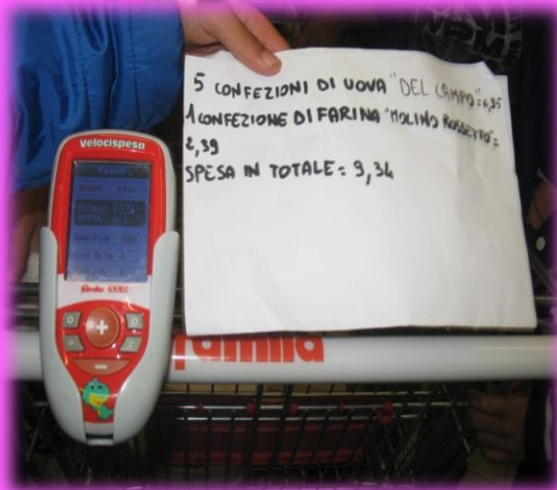 5 CONFEZIONI DI UOVA "DEL CAMPO"=6,95
1 CONFEZIONE DI FARINA "MOLINO ROSSETTO"=
2,39
SPESA IN TOTALE = 9,34
Velocispesa
TOTALE
SPESA
familia